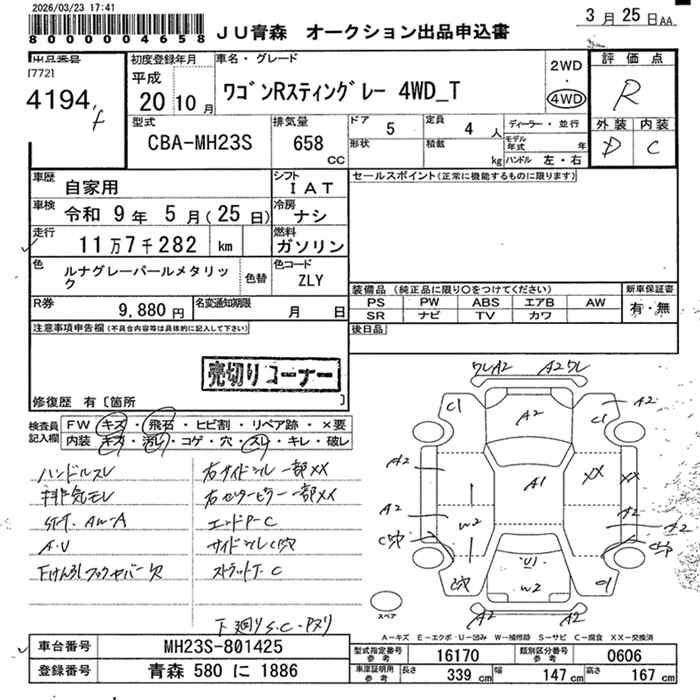 2026/03/23 17:41
8000000004658
JU青森 オークション出品申込書
3月25日AA
出品番号
[772]
4194
初度登録年月
平成
20 10月
車名・グレード
ワゴンRスティングレー 4WD_T
2WD
・
4WD
評価点
R
型式
CBA-MH23S
排気量
658
CC
ドア
5
定員
4 人
ディーラー・並行
形状
積載
kg
モデル年式 年
ハンドル 左・右
外装 内装
D C
車歴
自家用
シフト
IAT
セールスポイント(正常に機能するものに限ります)
車検
令和 9年 5月(25日)
冷房
ナシ
走行
11万7千282 km
燃料
ガソリン
色
ルナグレーパールメタリック
色替
色コード
ZLY
R券
9,880円
名変通知期限
月 日
装備品 (純正品に限り○をつけてください)
PS PW ABS エアB AW
SR ナビ TV カワ
新車保証書
有・無
後日品
注意事項申告欄(不具合内容等は具体的に記入して下さい)
売切りコーナー
修復歴 有〔箇所 〕
検査員記入欄
FW キズ・飛石・ヒビ割・リペア跡・×要
内装 キズ・汚レ・コゲ・穴・スレ・キレ・破レ
ハンドルスレ
排気モレ
A.U
右サイドシル一部XX
右センターピラー一部XX
エンドP-C
サイドシルC穴
ストラットT.C
下廻りS.C・Pヌリ
ワレA2 A2ワレ
C1 A2 C1 A2
A2 A1 XX XX
A2 W2 A2 A2
C穴 C穴
U1
C穴 W2 C1
A2 A2
スペア
A-キズ E-エクボ・U-凹み W-補修跡 S-サビ C-腐食 XX-交換済
車台番号
MH23S-801425
登録番号
青森 580 に 1886
型式指定番号
参考
16170
類別区分番号
参考
0606
車庫証明用
参考
長さ 339 cm
幅 147 cm
高さ 167 cm